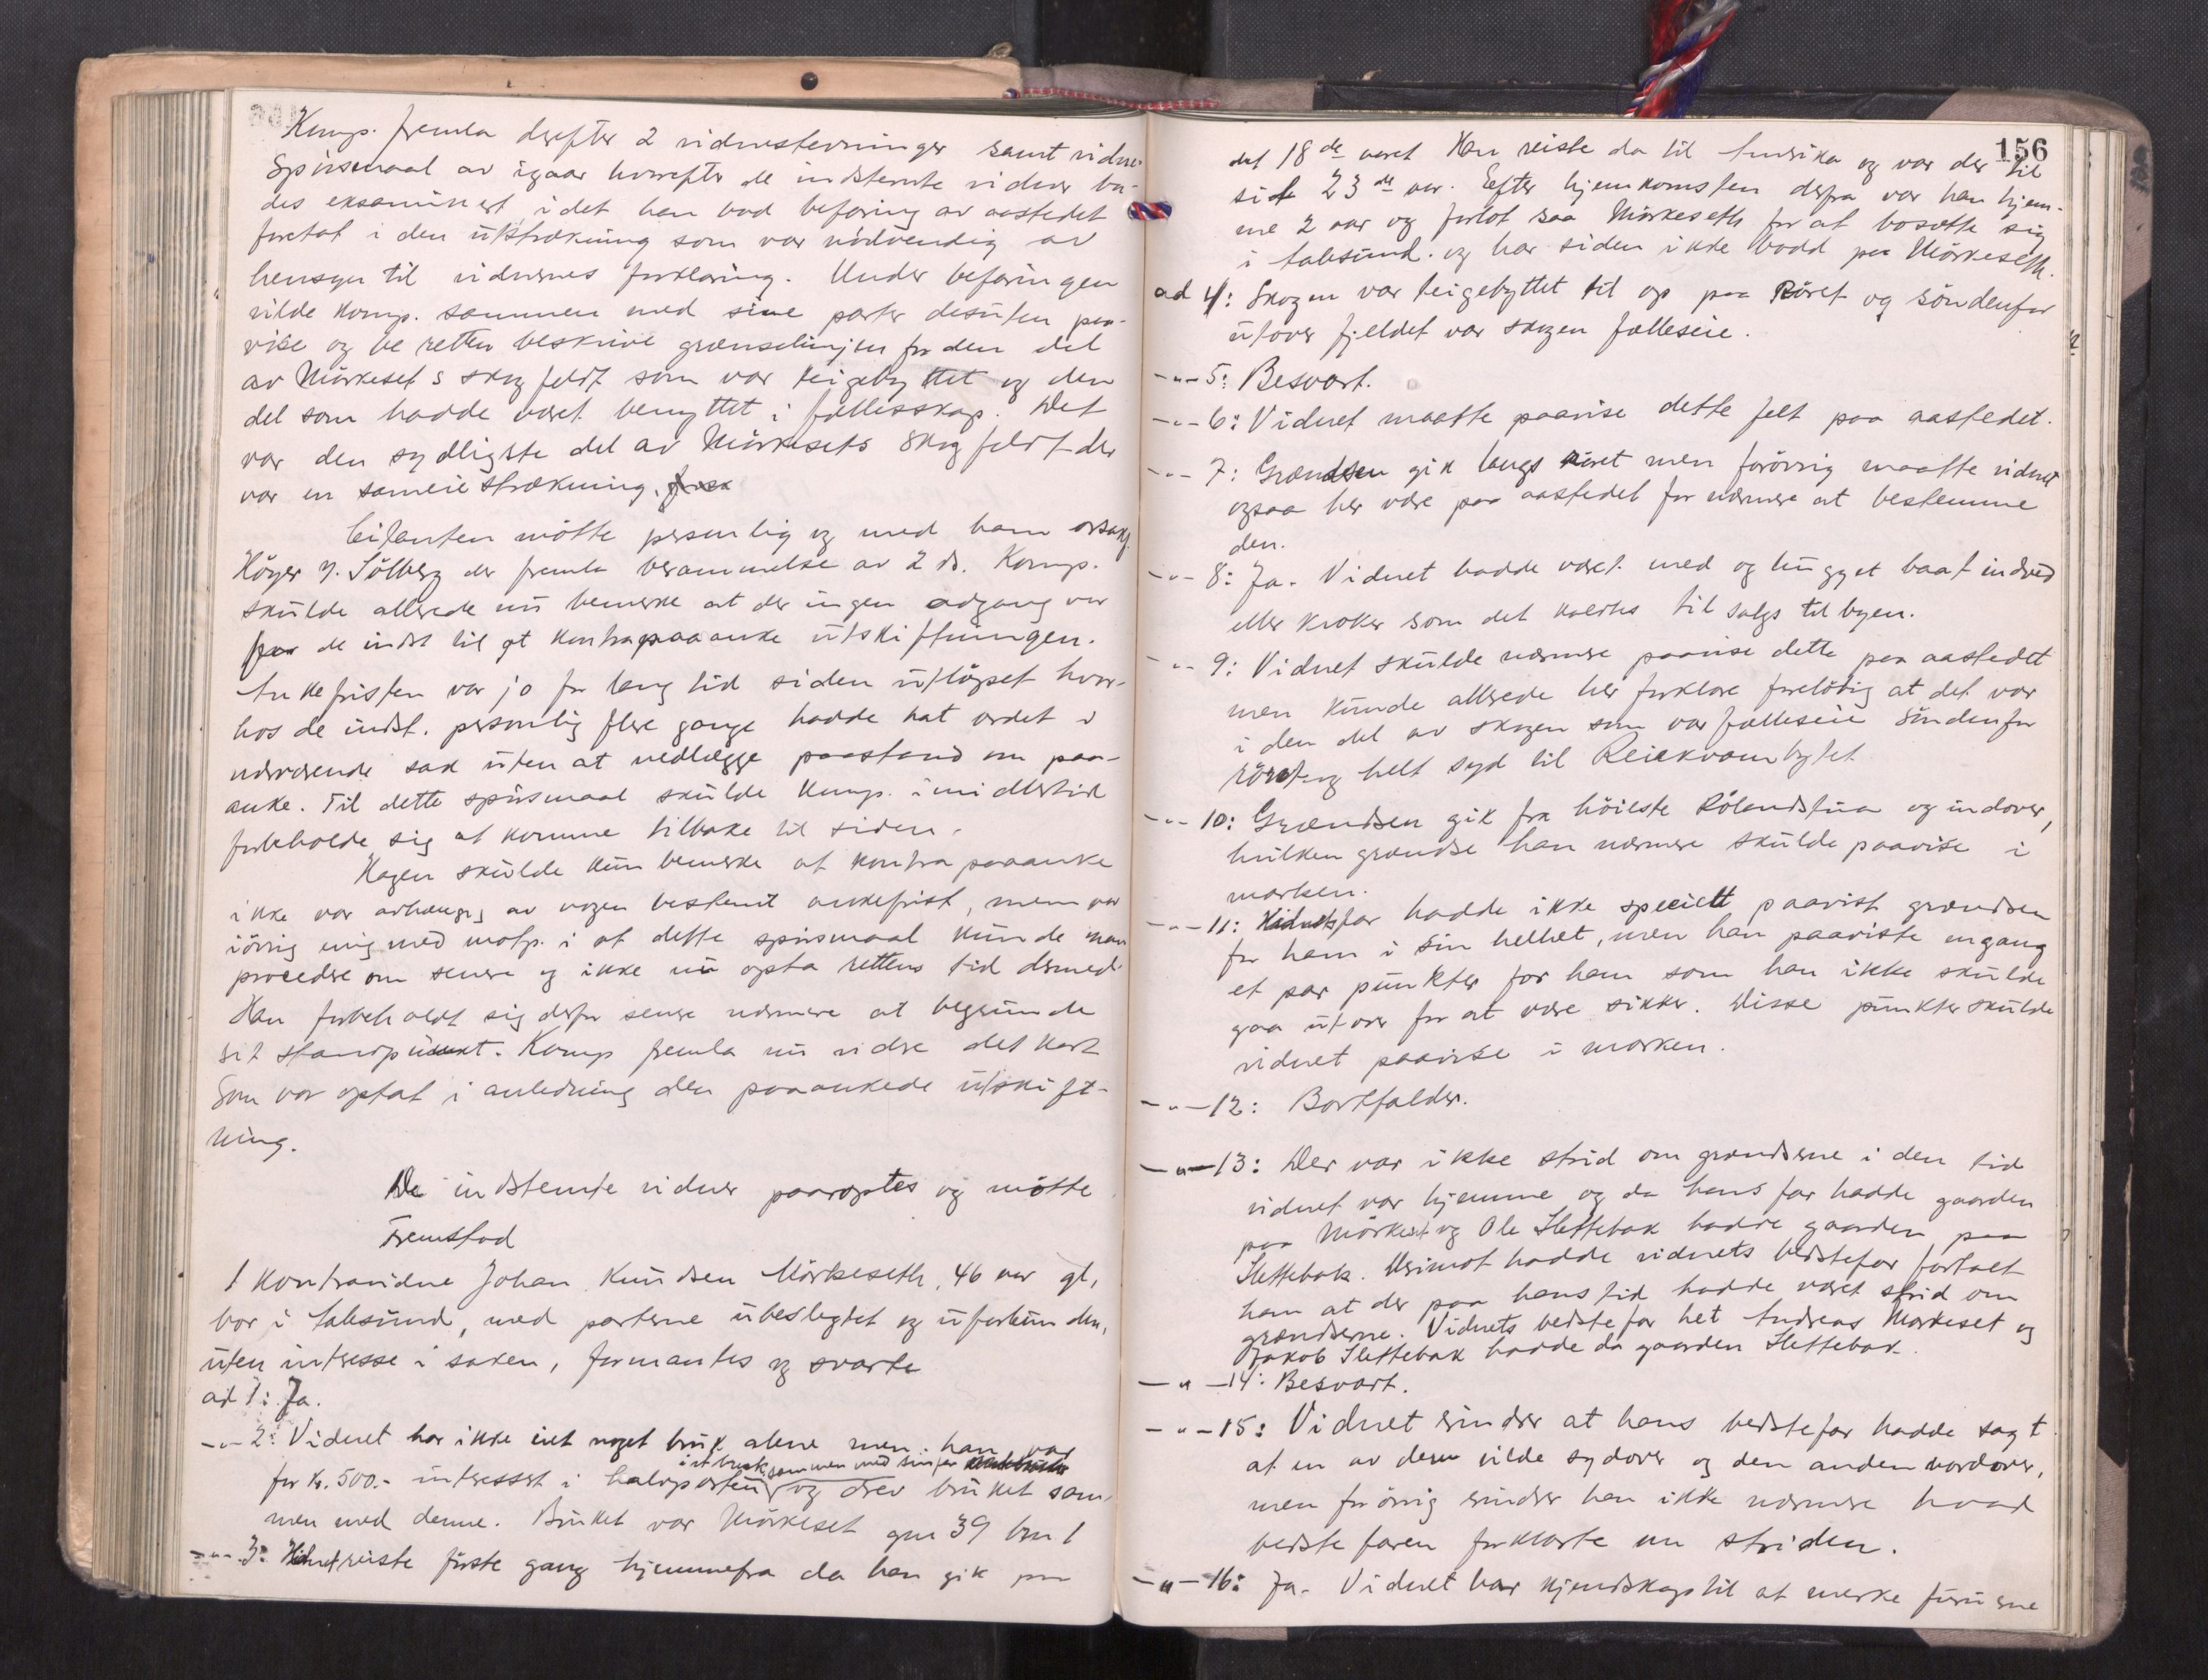 Komp. fremla derefter 2 vidnestevninger samt vidne-
spörsmaal av igaar hvorefter de indstevnte vidner ba-
des eksaminert, idet han bad befaring av aastedet
foretat i den utstrækning som var nödvendig av
hensyn til vidnernes forklaring. Under befaringen
vilde komp. sammen med sine parter desuten paa-
vise og be retten beskrive grænselinjen for den del
av Mörkesets skogfeldt som var teigebyttet og den
del som hadde været benyttet i fællesskap. Det
var den sydligste del av Mörkesets skogfeldt der
var en sameiestrækning.
Citanten mötte personlig og med ham orsakf.
Höyer y. Sölberg der fremla berammelse av 2 ds. Komp.
skulde allerede nu bemerke at der ingen adgang var
for de indst til at kontrapaaanke utskiftningen.
Ankefristen var jo for lang tid siden utlöpet hvor-
hos de indst. personlig flere gange hadde hat ordet i
nærværende sak uten at nedlægge paastand om paa-
anke. Til dette spörsmaal skulde komp. imidlertid
forbeholde sig at komme tilbake til siden.
Hagen skulde kun bemerke at kontrapaaanke
ikke var avhængig av nogen bestemt ankefrist, men var
iövrig enig med motp. i at dette spörsmaal kunde man
procedere om senere og ikke nu opta rettens tid dermed.
Han forbeholdt sig derfor senere nærmere at begrunde
sit standpunkt. Komp fremla nu videre det kart
som var optat i anledning den paaankede utskift-
ning.
De indstevnte vidner paaroptes og mötte.
Fremstod
1 Kontravidne Johan Knudsen Mörkeseth, 46 aar gl,
bor i Aalesund, med parterne ubeslegtet og uforbunden,
uten interesse i saken, formantes og svarte
ad 1: Ja.
-"- 2: Vidnet har ikke eiet noget bruk alene men han var
i et bruk sammen med sin far
for kr. 500.- interessert i halvparten og drev bruket sam-
men med denne. Bruket var Mörkeset gnr 39 bnr 1
-"- 3: Vidnet reiste förste gang hjemmefra da han gik paa
156
det 18de aaret. Han reiste da til Amerika og var der til
sit 23de aar. Efter hjemkomsten derfra var han hjem-
me 2 aar og forlot saa Mörkeseth for at bosætte sig
i Aalesund. og har siden ikke bodd paa Mörkeseth.
ad 4: Skogen var teigebyttet til op paa Röret og söndenfor
utover fjeldet var skogen fælleseie.
-"- 5: Besvart.
-"- 6: Vidnet maatte paavise dette felt paa aastedet.
-"- 7: Grændsen gik langs röret men forövrig maatte vidnet
ogsaa her være paa aastedet for nærmere at bestemme
den.
-"- 8: Ja. Vidnet hadde været med og hugget baatindved
eller kroker som det kaldtes til salgs til byen.
-"- 9: Vidnet skulde nærmere paavise dette paa aastedet
men kunde allerede her forklare forelöbig at det var
i den del av skogen som var fælleseie söndenfor
röret og helt syd til Reiekvambytet
-"- 10: Grændsen gik fra höieste Rölandstua og indover,
hvilken grændse han nærmere skulde paavise i
marken.
-"- 11: Vidnets far hadde ikke specielt paavist grændsen
for ham i sin helhet, men han paaviste engang
et par punkter for ham som han ikke skulde
gaa utover for at være sikker. Disse punkter skulde
vidnet paavise i marken.
-"- 12: Bortfalder.
-"- 13: Der var ikke strid om grændserne i den tid
vidnet var hjemme og da hans far hadde gaarden
paa Mörkeset og Ole Slettebak hadde gaarden paa
Slettebak. Derimot hadde vidnets bedstefar fortalt
ham at der paa hans tid hadde været strid om
grændserne. Vidnets bedstefar het Andreas Mörkeset og
Jakob Slettebak hadde da gaarden Slettebak.
-"- 14: Besvart.
-"- 15: Vidnet erindrer at hans bedstefar hadde sagt
at en av dem vilde sydover og den anden nordover,
men forövrig erindrer han ikke nærmere hvad
bedstefaren forklarte om striden.
-"- 16: Ja. Vidnet har kjendskap til at merke furuerne